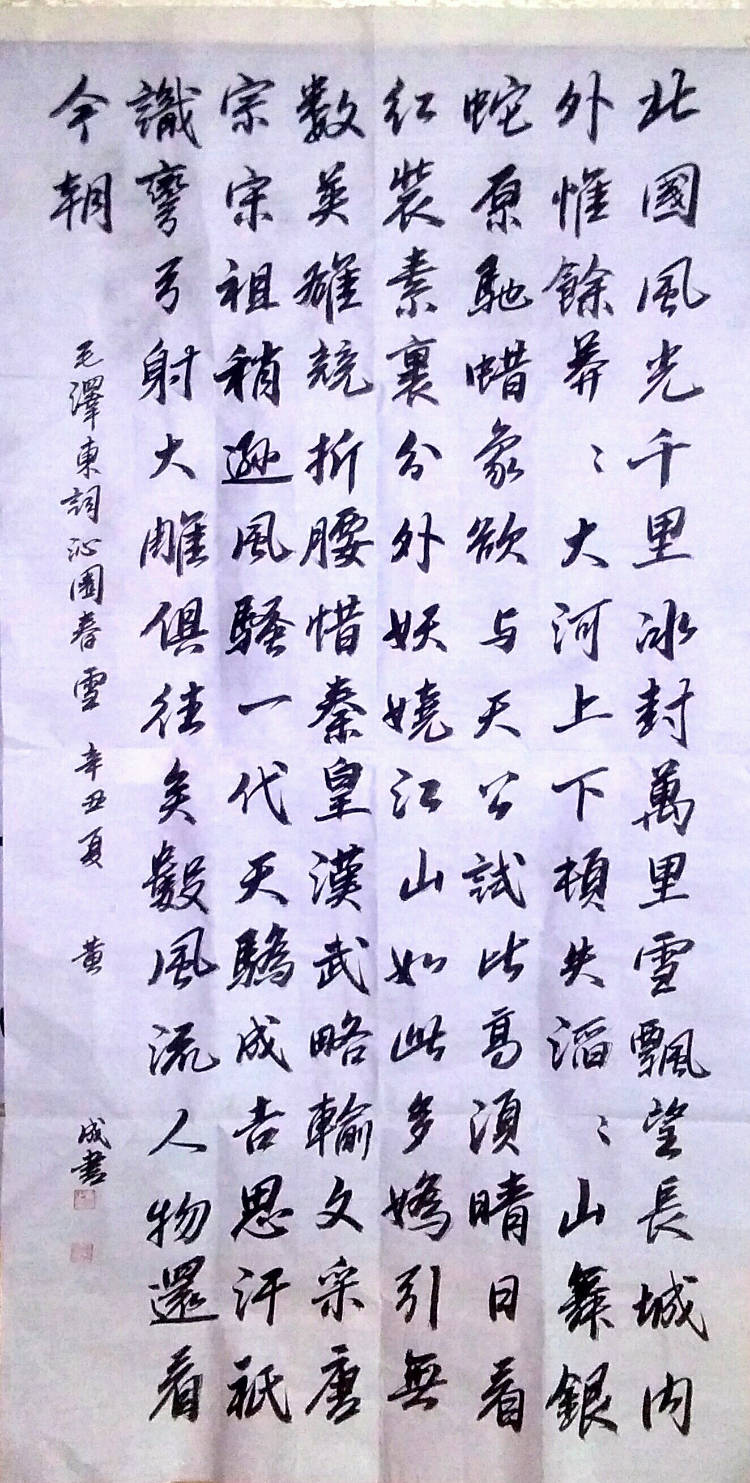 北國風光千里冰封萬里雪飄望長城内
外惟餘莽〻大河上下頓失滔〻山舞銀
蛇原馳蜡象欲与天公試比高須晴日看
红裝素裹分外妖嬈江山如此多嬌引無
数英雄競折腰惜秦皇漢武略輸文采唐
宗宋祖稍遜風騷一代天驕成吉思汗祇
識彎弓射大雕俱往矣數風流人物還看
今朝
毛澤東詞沁園春雪 辛丑夏 黄 成書